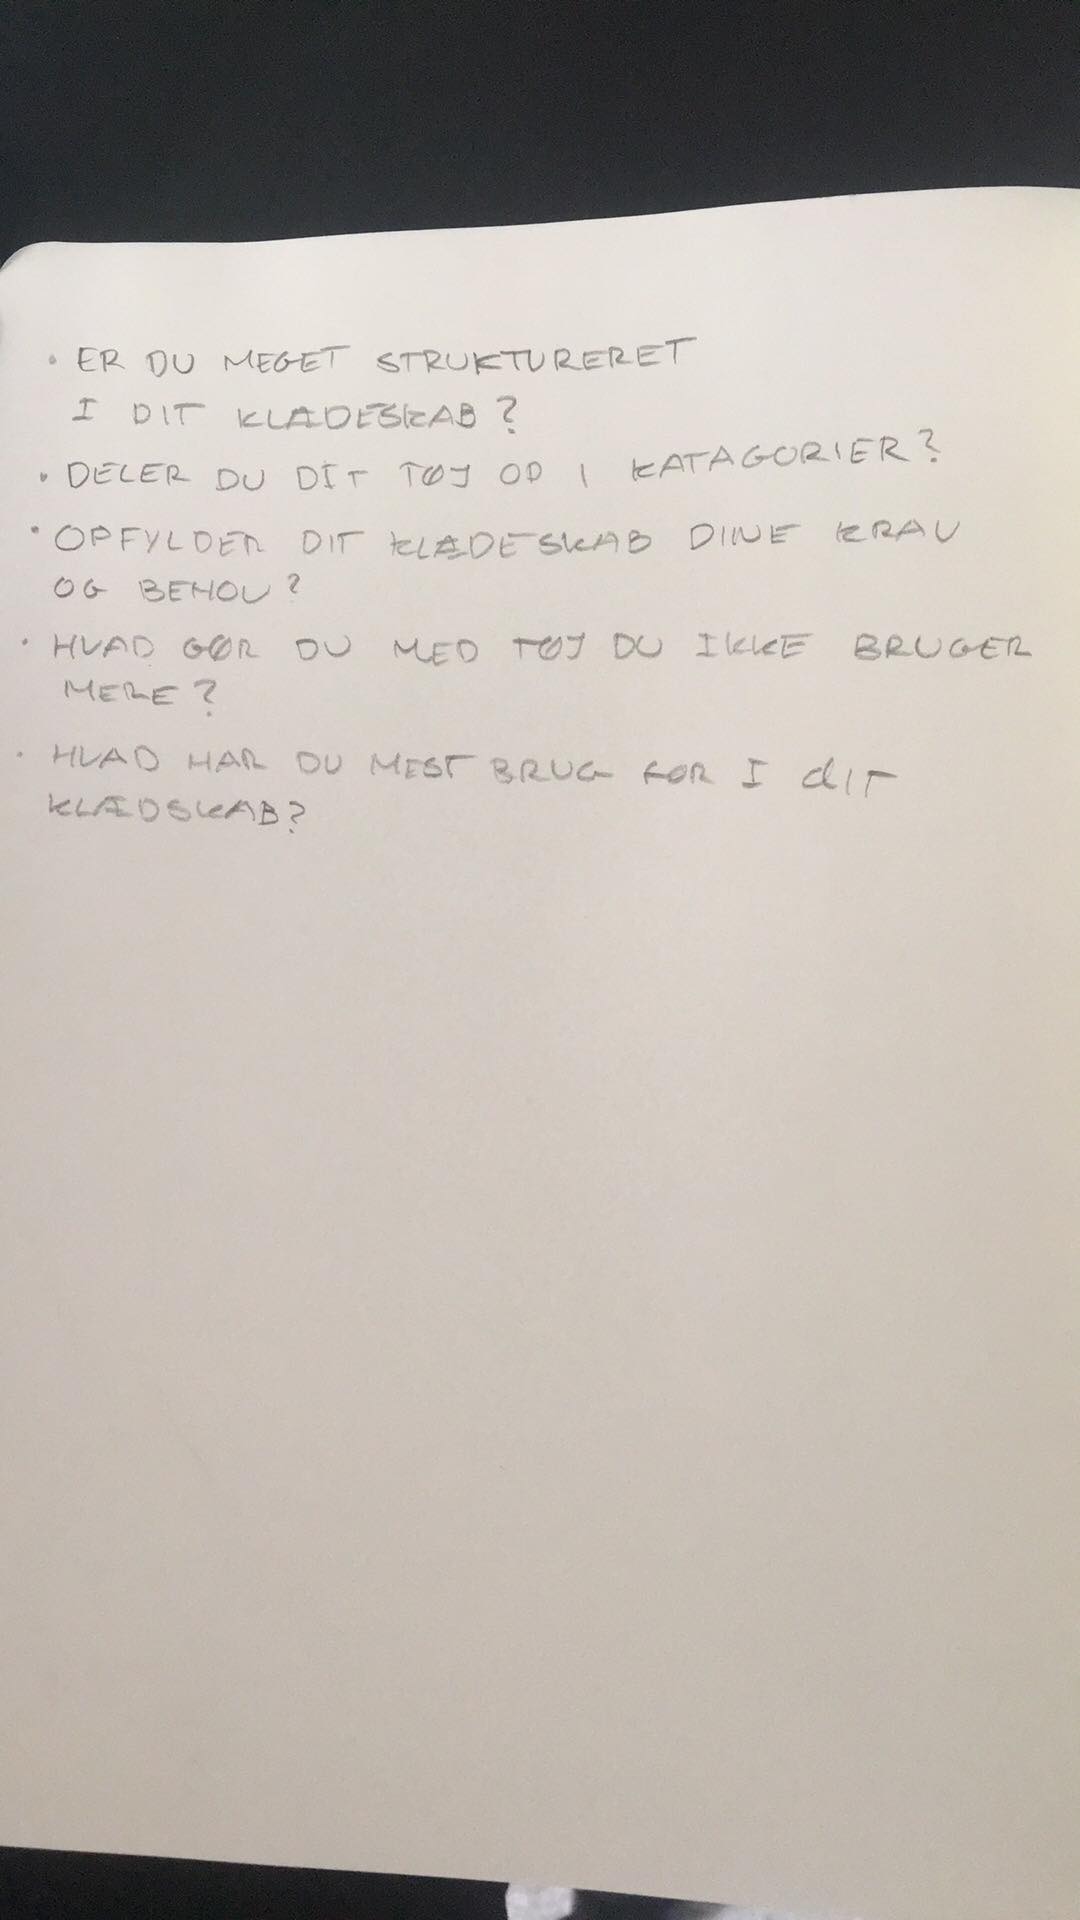 • ER DU MEGET STRUKTURERET
I DIT KLÆDESKAB?
• DELER DU DIT TØJ OP I KATAGORIER?
• OPFYLDER DIT KLÆDESKAB DINE KRAV
OG BEHOV?
• HVAD GØR DU MED TØJ DU IKKE BRUGER
MERE?
• HVAD HAR DU MEST BRUG FOR I dIT
KLÆDSKAB?